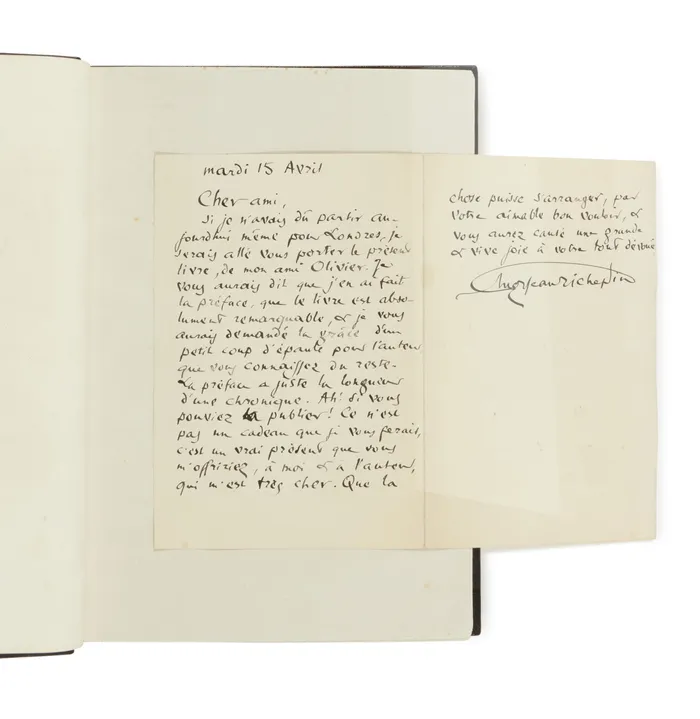 mardi 15 Avril
Cher ami,
Si je n'avais dû partir au-
jourdhui même pour Londres, je
serais allé vous porter le présent
livre, de mon ami Olivier. Je
vous aurais dit que j'en ai fait
la préface, que le livre est abso-
lument remarquable, & je vous
aurais demandé la grâce d'un
petit coup d'épaule pour l'auteur,
que vous connaissez du reste.
La préface a juste la longueur
d'une chronique. Ah! Si vous
pouviez la publier! Ce n'est
pas un cadeau que je vous ferais,
c'est un vrai présent que vous
m'offririez, à moi & à l'auteur,
qui m'est très cher. Que la
chose puisse s'arranger, par
votre aimable bon vouloir, &
vous aurez causé une grande
& vive joie à votre tout dévoué
Jean Richepin